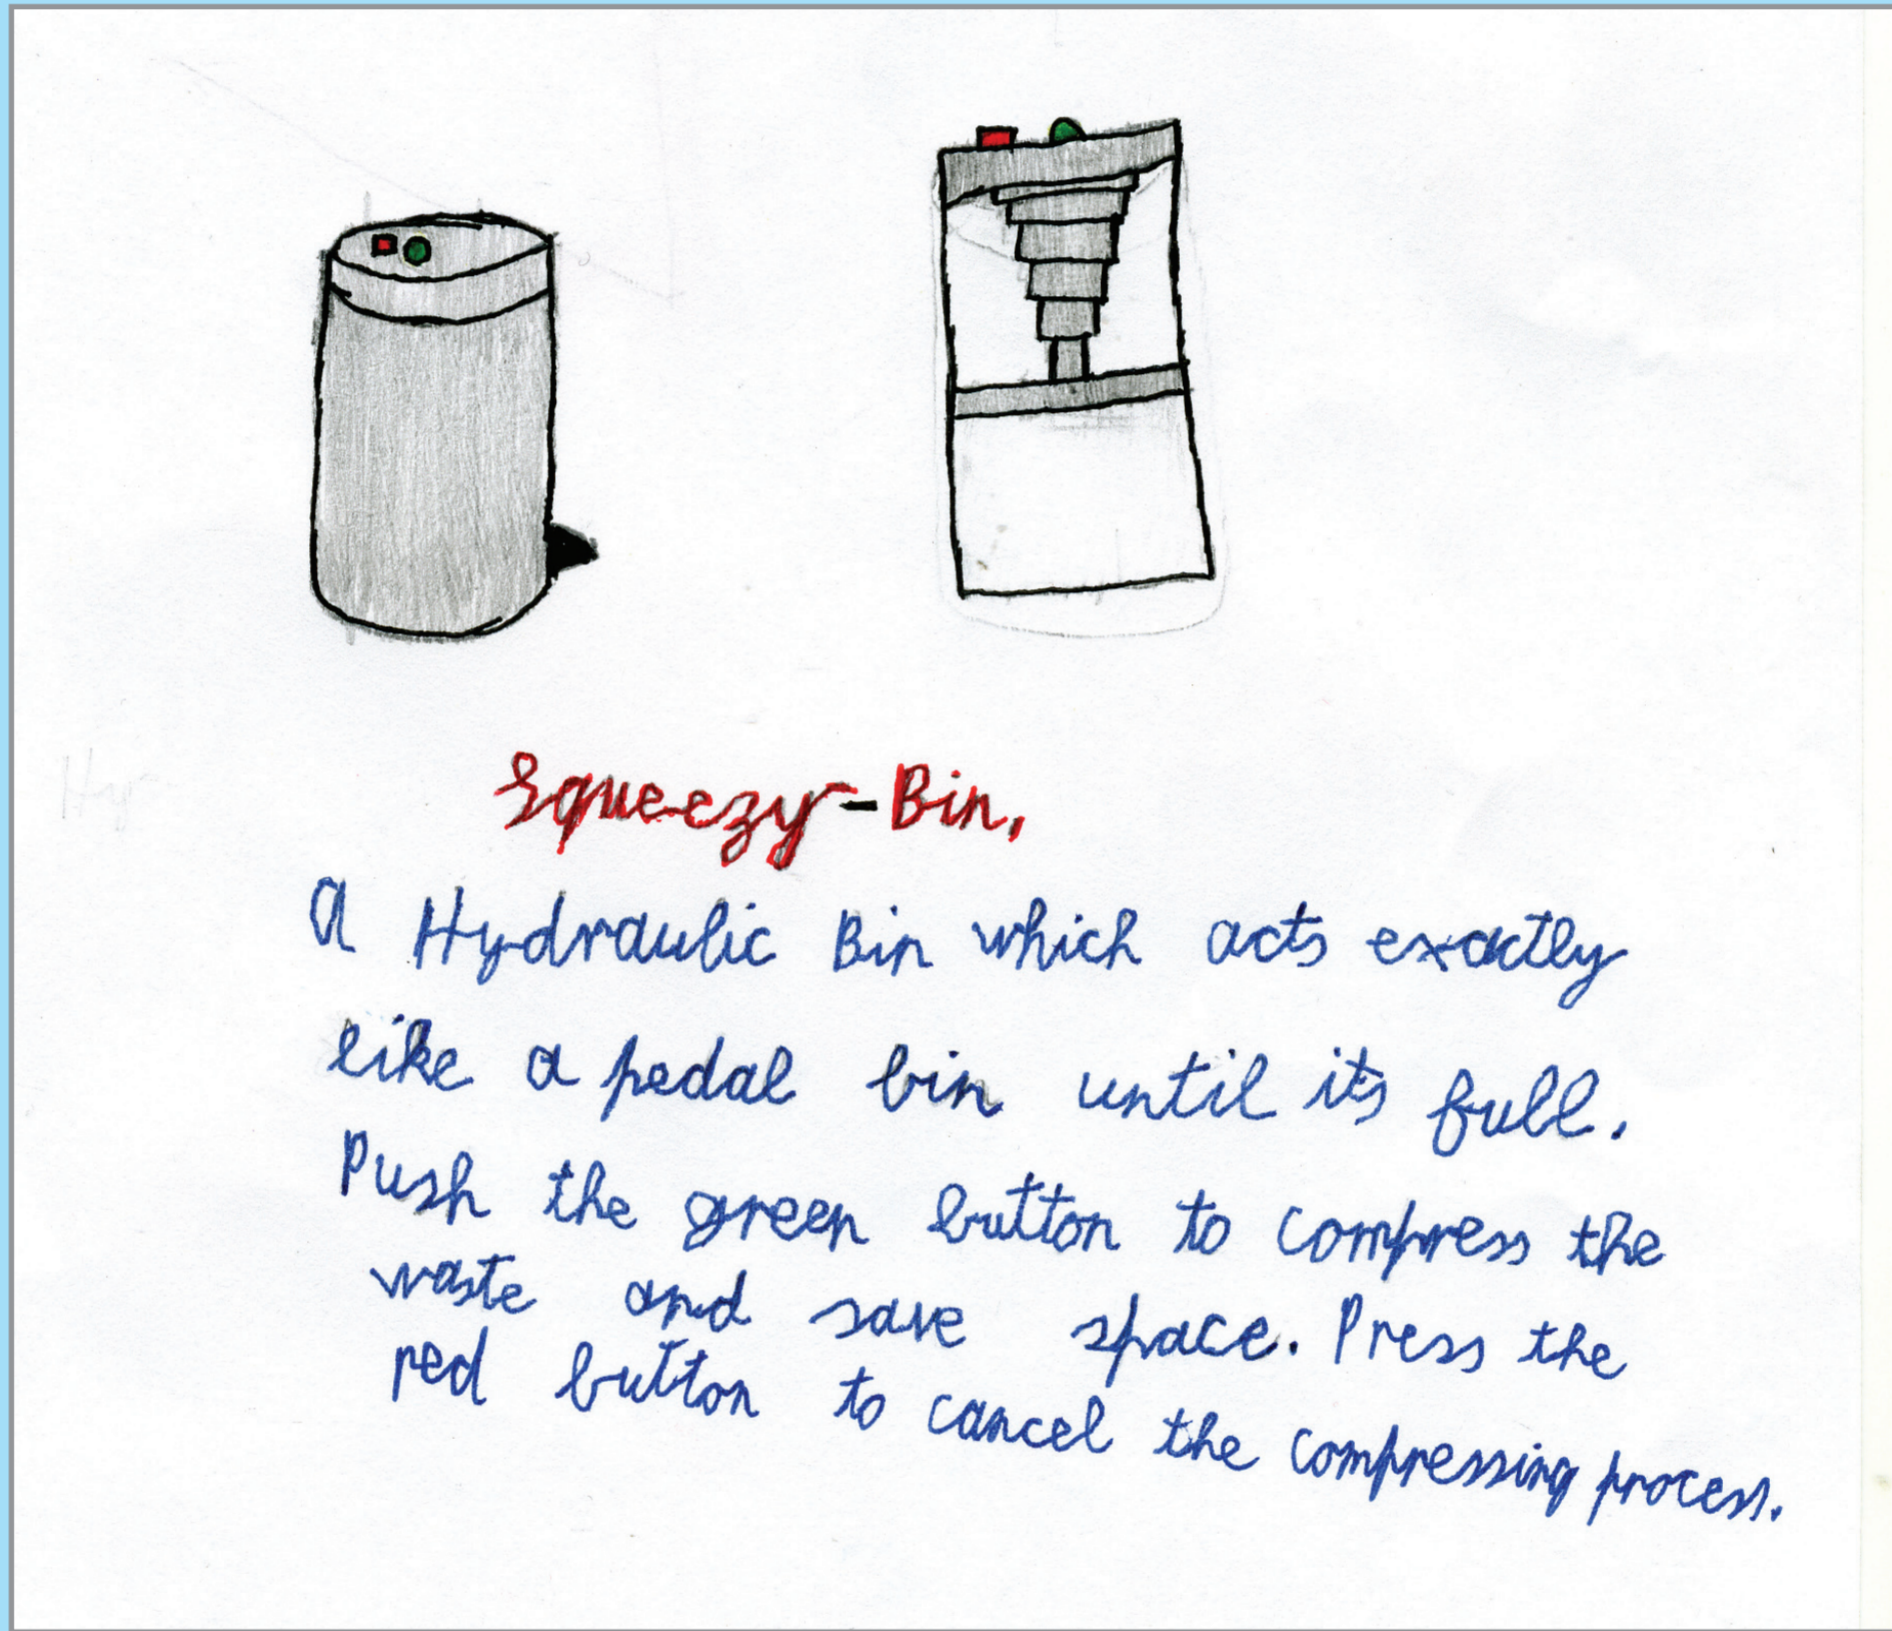 Squeezy-Bin,
a Hydraulic Bin which acts exactly
like a pedal bin until its full.
Push the green button to compress the
waste and save space. Press the
red button to cancel the compressing process.
Hy